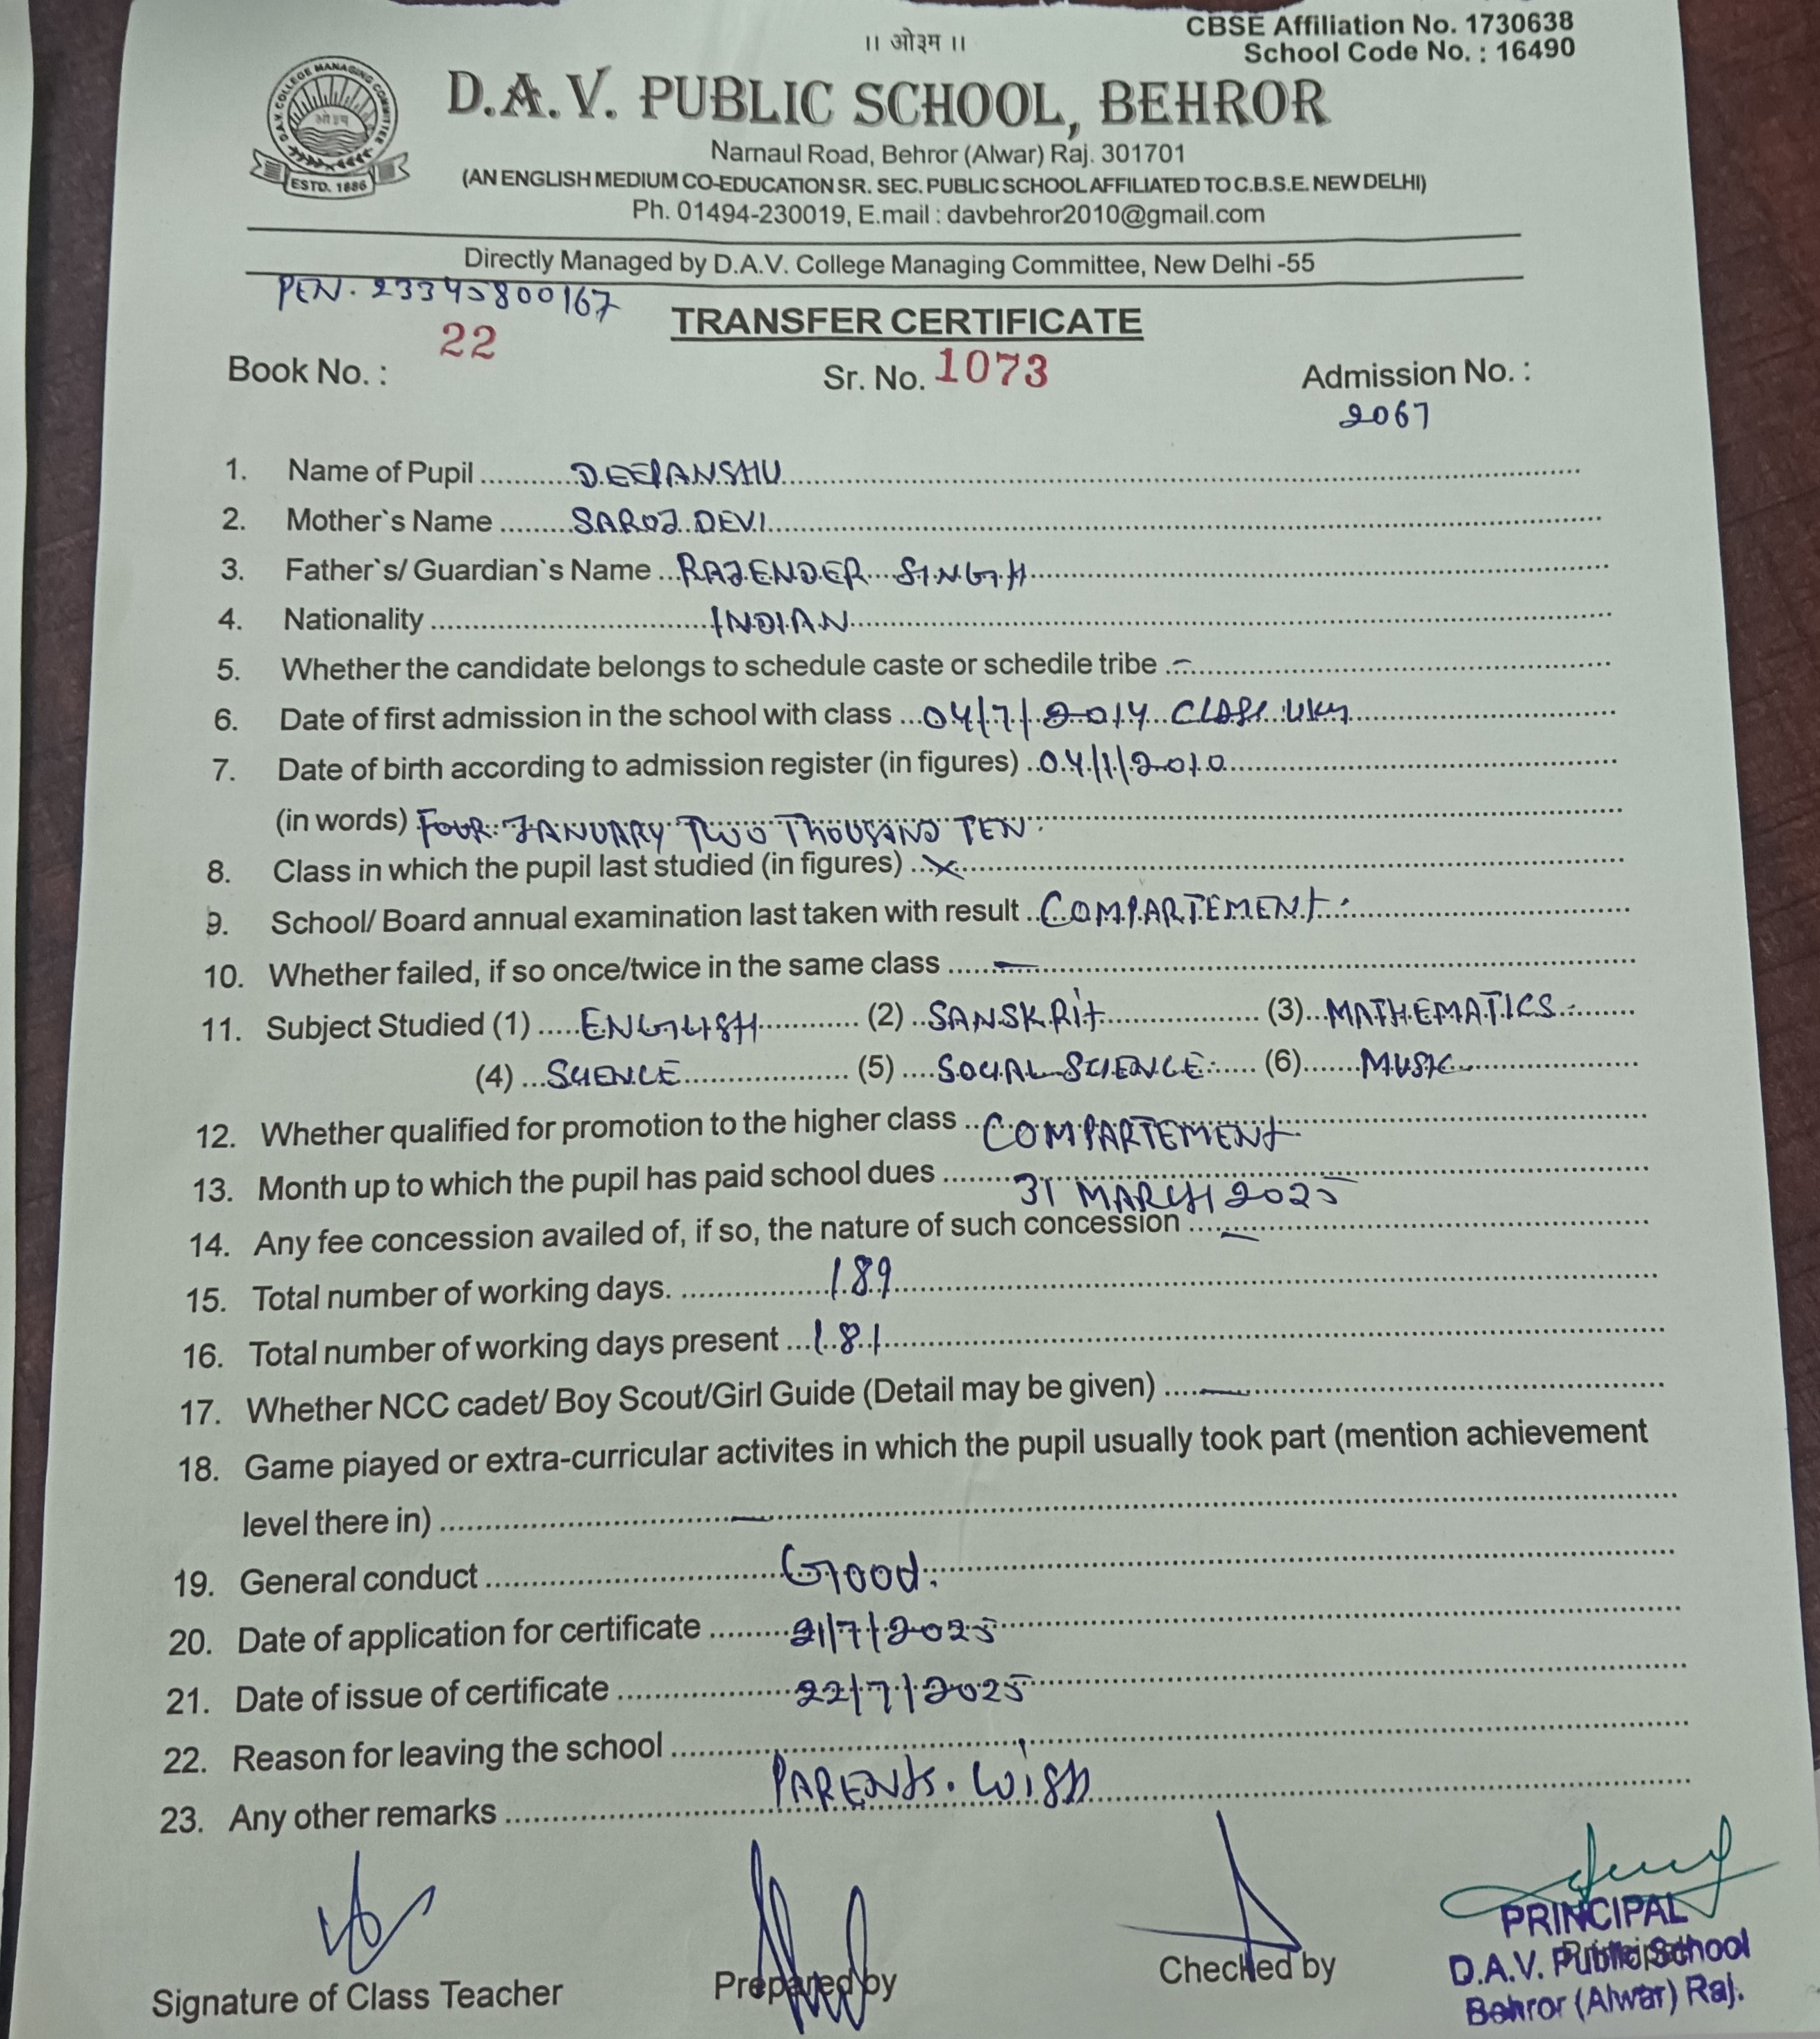 CBSE Affiliation No. 1730638
।। ओ३म ।।
School Code No. : 16490
D.A.V. COLLEGE MANAGING COMMITTEE
ओ३म्
ESTD. 1886
D.A.V. PUBLIC SCHOOL, BEHROR
Narnaul Road, Behror (Alwar) Raj. 301701
(AN ENGLISH MEDIUM CO-EDUCATION SR. SEC. PUBLIC SCHOOL AFFILIATED TO C.B.S.E. NEW DELHI)
Ph. 01494-230019, E.mail : davbehror2010@gmail.com
Directly Managed by D.A.V. College Managing Committee, New Delhi -55
PEN. 23345800167
TRANSFER CERTIFICATE
Book No. : 22 Sr. No. 1073 Admission No. :
2067
1. Name of Pupil DEEPANSHU
2. Mother`s Name SAROJ DEVI
3. Father`s/ Guardian`s Name RAJENDER SINGH
4. Nationality INDIAN
5. Whether the candidate belongs to schedule caste or schedile tribe -
6. Date of first admission in the school with class 04/7/2014 CLASS UKG
7. Date of birth according to admission register (in figures) 04/1/2010
(in words) FOUR JANUARY TWO THOUSAND TEN
8. Class in which the pupil last studied (in figures) X
9. School/ Board annual examination last taken with result COMPARTEMENT
10. Whether failed, if so once/twice in the same class —
11. Subject Studied (1) ENGLISH (2) SANSKRIT (3) MATHEMATICS
(4) SCIENCE (5) SOCIAL SCIENCE (6) MUSIC
12. Whether qualified for promotion to the higher class COMPARTEMENT
13. Month up to which the pupil has paid school dues 31 MARCH 2025
14. Any fee concession availed of, if so, the nature of such concession —
15. Total number of working days. 189
16. Total number of working days present 181
17. Whether NCC cadet/ Boy Scout/Girl Guide (Detail may be given) —
18. Game piayed or extra-curricular activites in which the pupil usually took part (mention achievement
level there in) —
19. General conduct Good.
20. Date of application for certificate 21/7/2025
21. Date of issue of certificate 22/7/2025
22. Reason for leaving the school PARENTS. Wish
23. Any other remarks
Signature of Class Teacher Prepared by Checked by Principal
PRINCIPAL
D.A.V. Public School
Behror (Alwar) Raj.